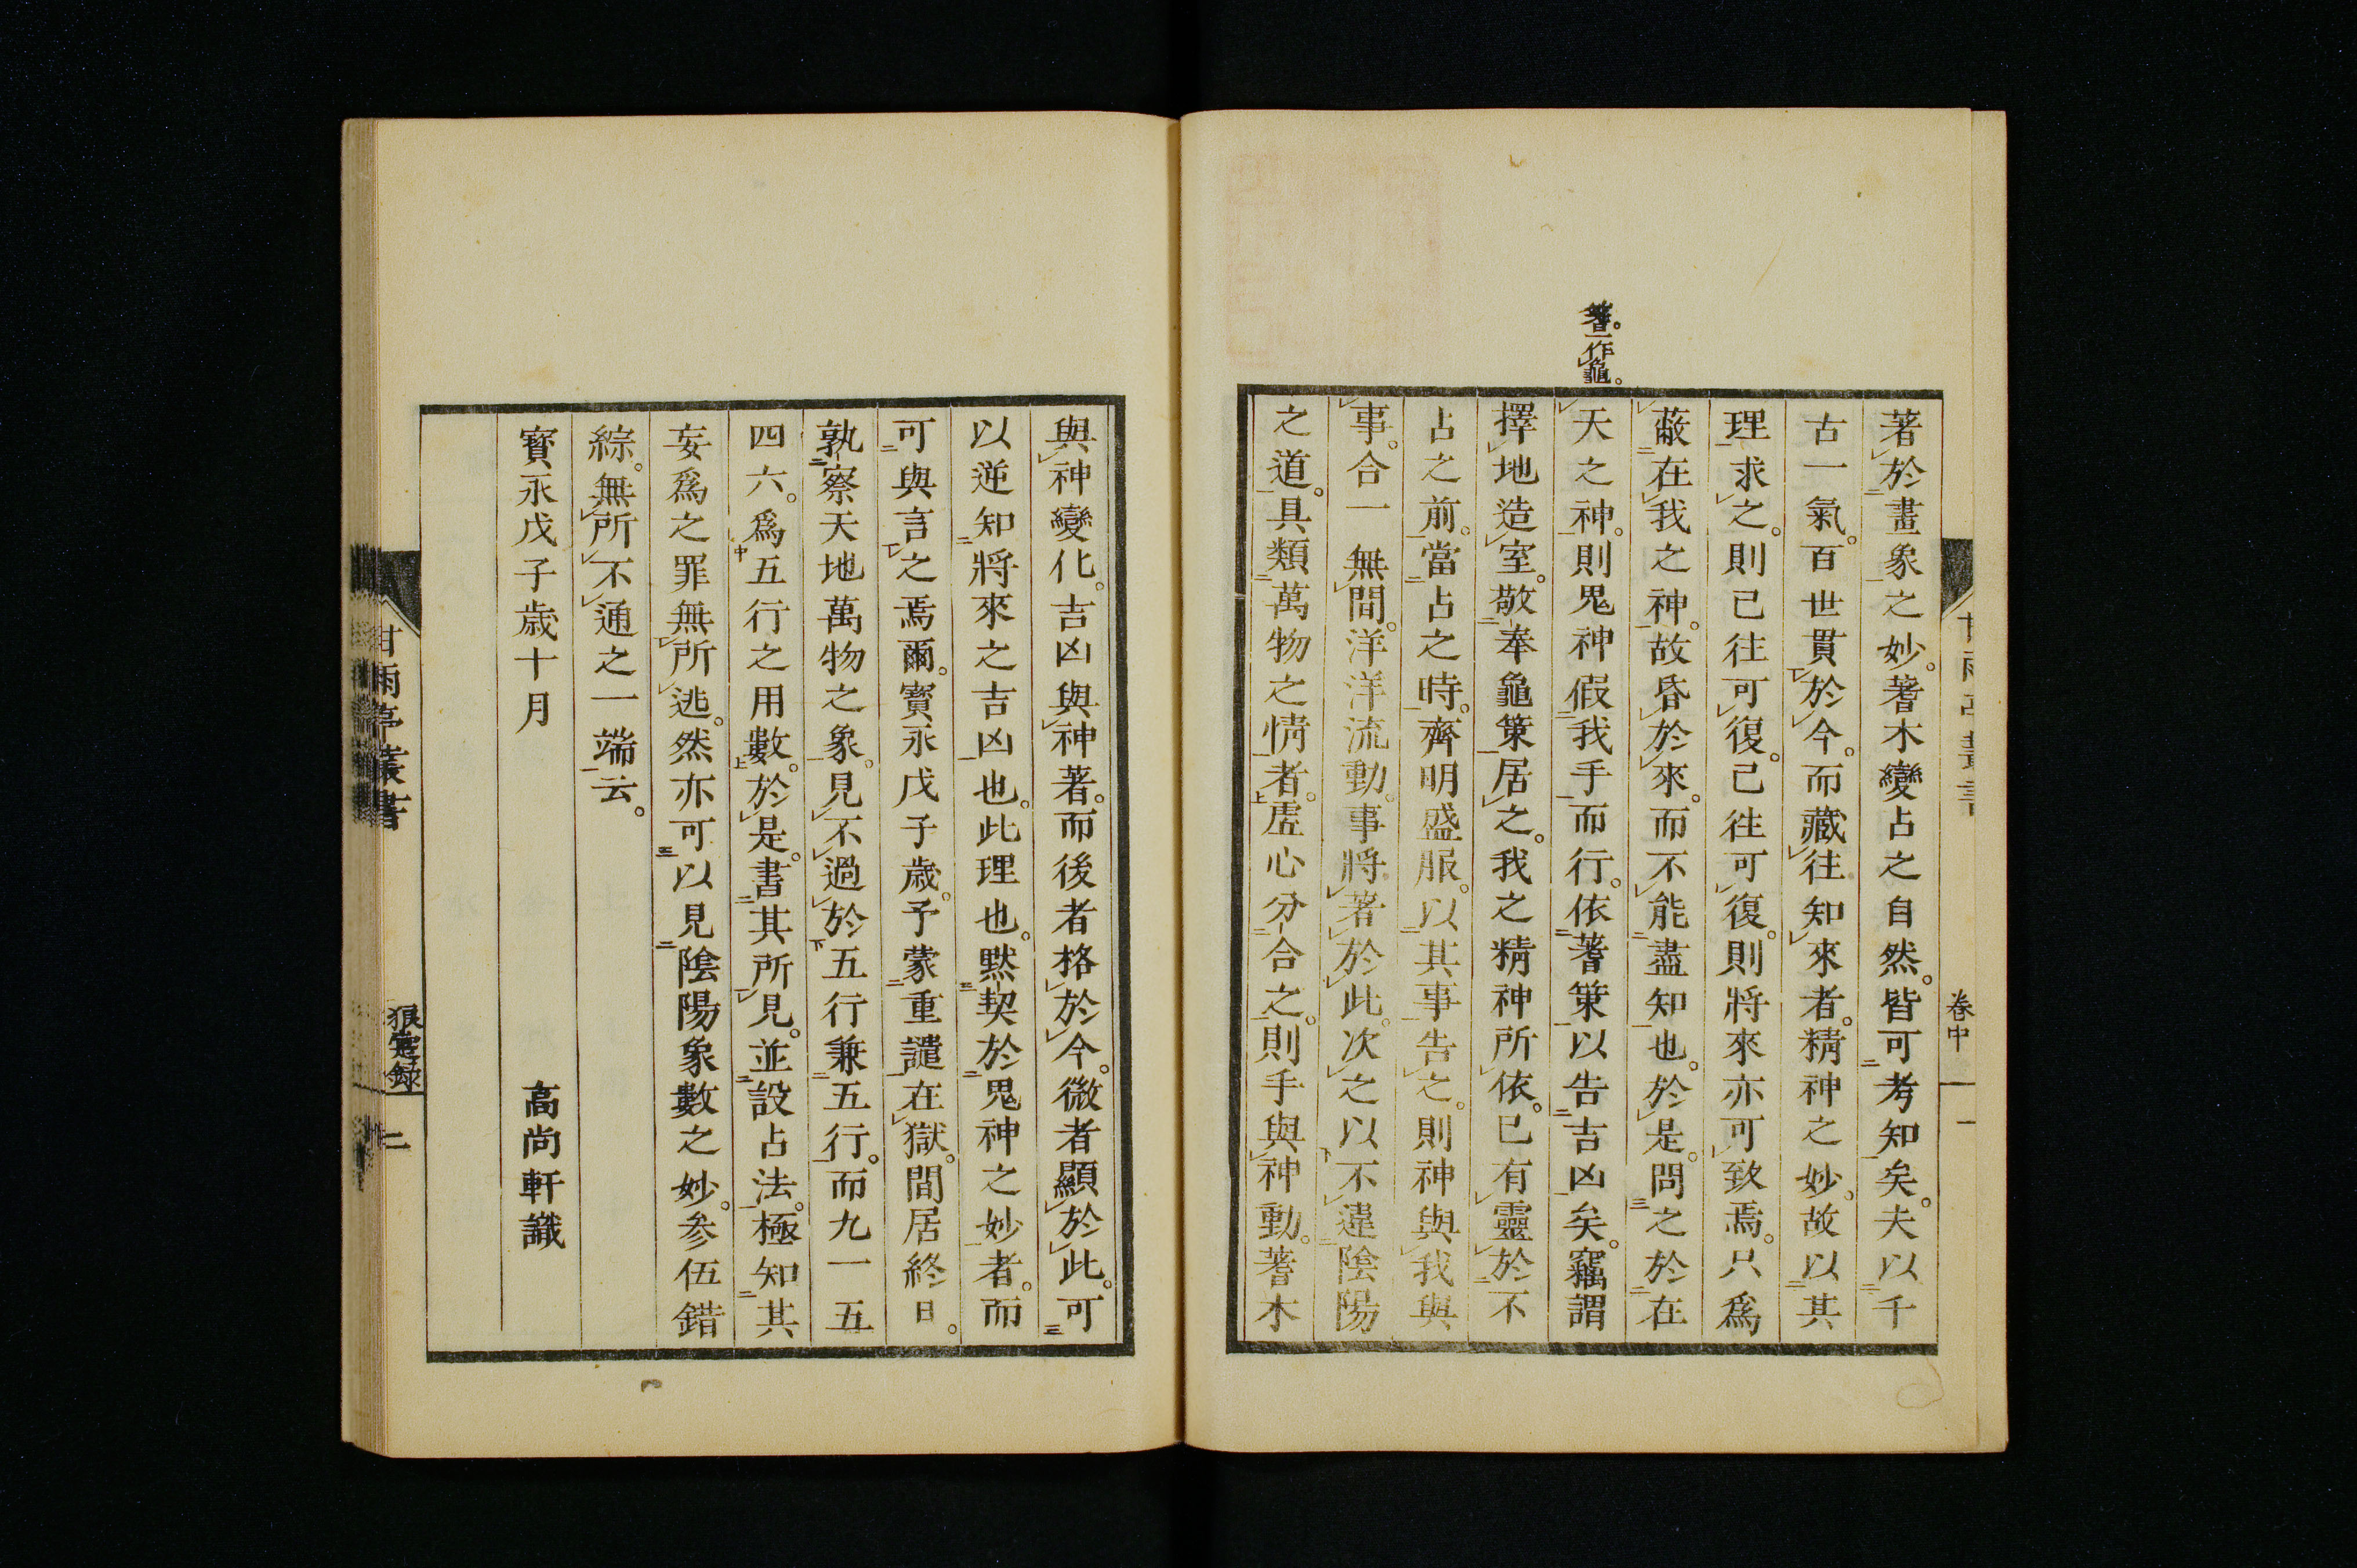 蓍。一作龜。
著於畫象之妙。蓍木變占之自然。皆可考知矣。夫以千
古一氣。百世貫於今。而藏往知來者。精神之妙。故以其
理求之。則已往可復。已往可復。則將來亦可致焉。只爲
蔽在我之神。故昏於來。而不能盡知也。於是。問之於在
天之神。則鬼神假我手而行。依蓍筞以告吉凶矣。竊謂
擇地造室。敬奉龜筞居之。我之精神所依。已有靈於不
占之前。當占之時。齊明盛服。以其事告之。則神與我與
事。合一無間。洋洋流動。事將著於此。次之以不違陰陽
之道。具類萬物之情者。虛心分合之。則手與神動。蓍木
卷中
一
與神變化。吉凶與神著。而後者格於今。微者顯於此。可
以逆知將來之吉凶也。此理也。默契於鬼神之妙者。而
可與言之焉爾。寳永戊子歳。予蒙重譴在獄。間居終日。
孰察天地萬物之象。見不過於五行兼五行。而九一五
四六。爲五行之用數。於是。書其所見。並設占法。極知其
妄爲之罪無所逃。然亦可以見陰陽象數之妙。参伍錯
綜。無所不通之一端云。
寳永戊子歳十月
高尚軒識
甘雨亭叢書
狼疐録
二